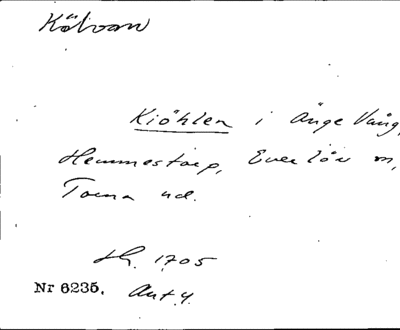 Kölvan
Kiöhlen i Änge Vång,
Hemmestorp, Everlöv sn,
Torna hd.
Lh. 1705
Nr 6235. Ant 4.